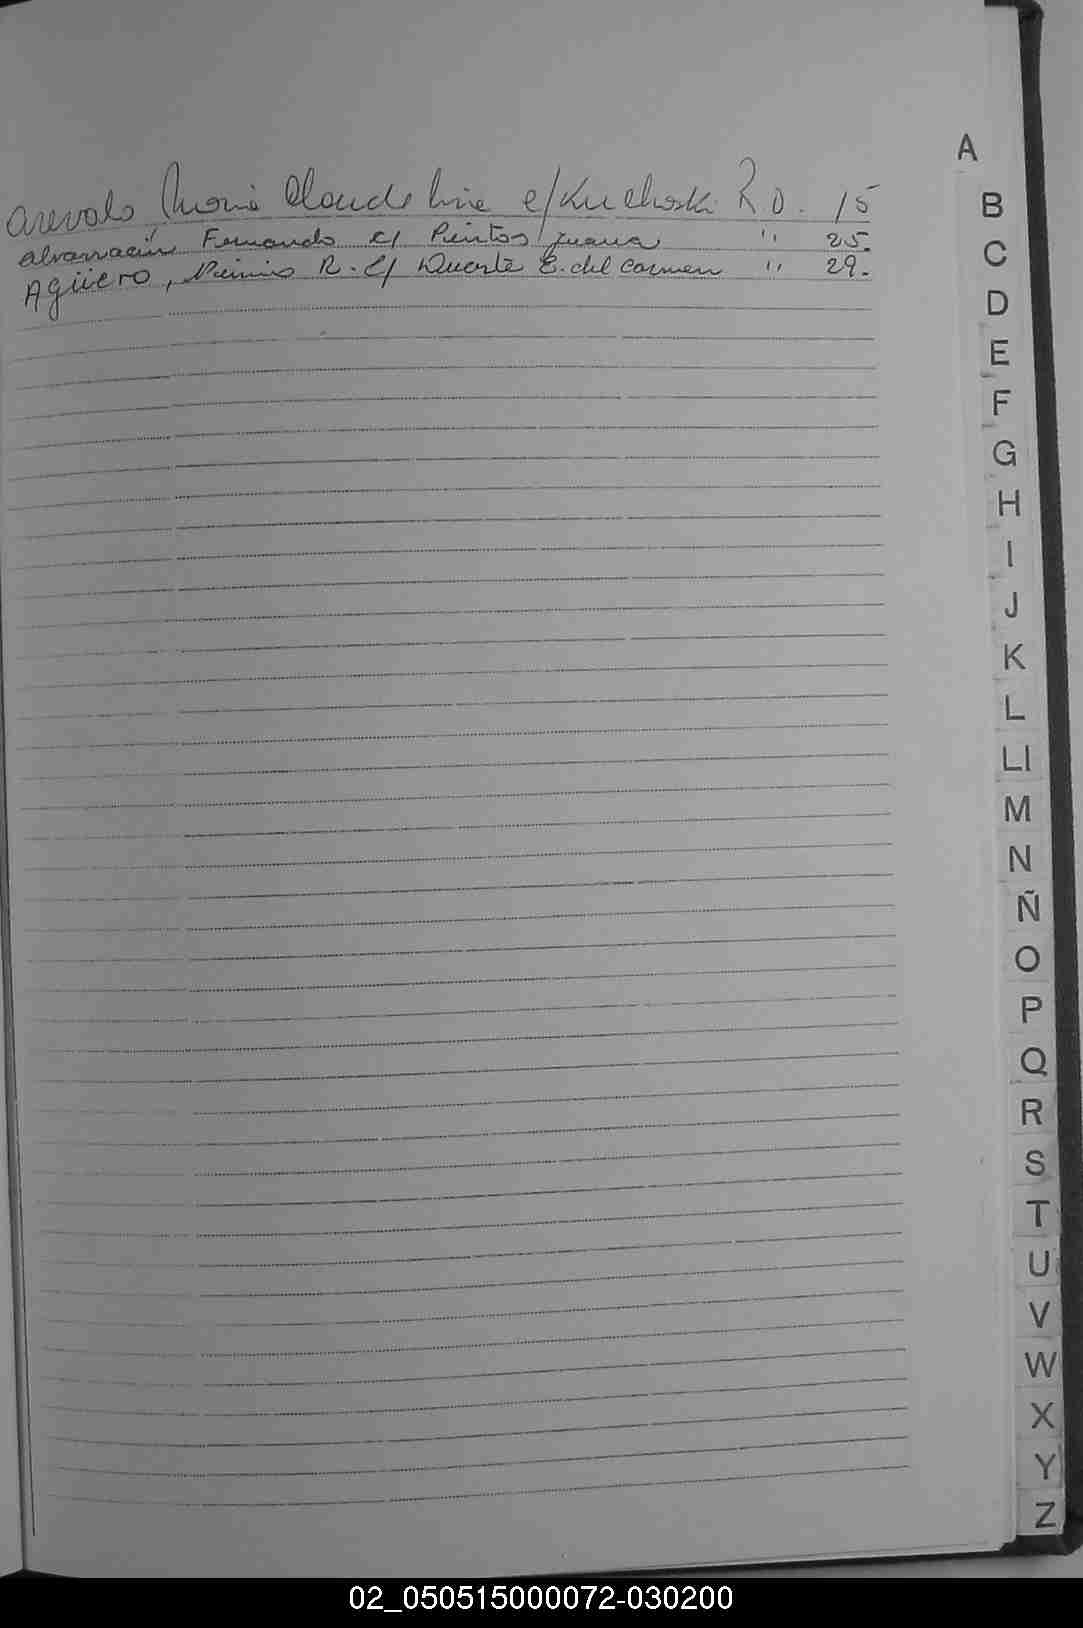 Arevalo Maria Claudelina c/ Kucharski R D. 15
Albarracin Fernando c/ Pintos Juana " 25.
Agüero, R. c/ Duarte E. del Carmen " 29.
A
B
C
D
E
F
G
H
I
J
K
L
Ll
M
N
Ñ
O
P
Q
R
S
T
U
V
W
X
Y
Z
02_050515000072-030200